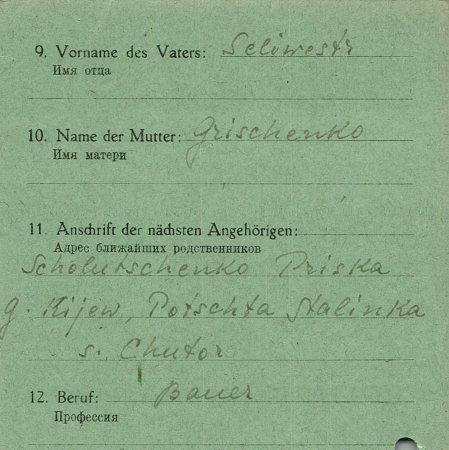 9. Vorname des Vaters: Seliwestr
Имя отца
10. Name der Mutter: Grischenko
Имя матери
11. Anschrift der nächsten Angehörigen:
Адрес ближайших родственников
Scholutschenko Priska
g. Kijew, Potschta Stalinka
s. Chutor
12. Beruf: Bauer
Профессия